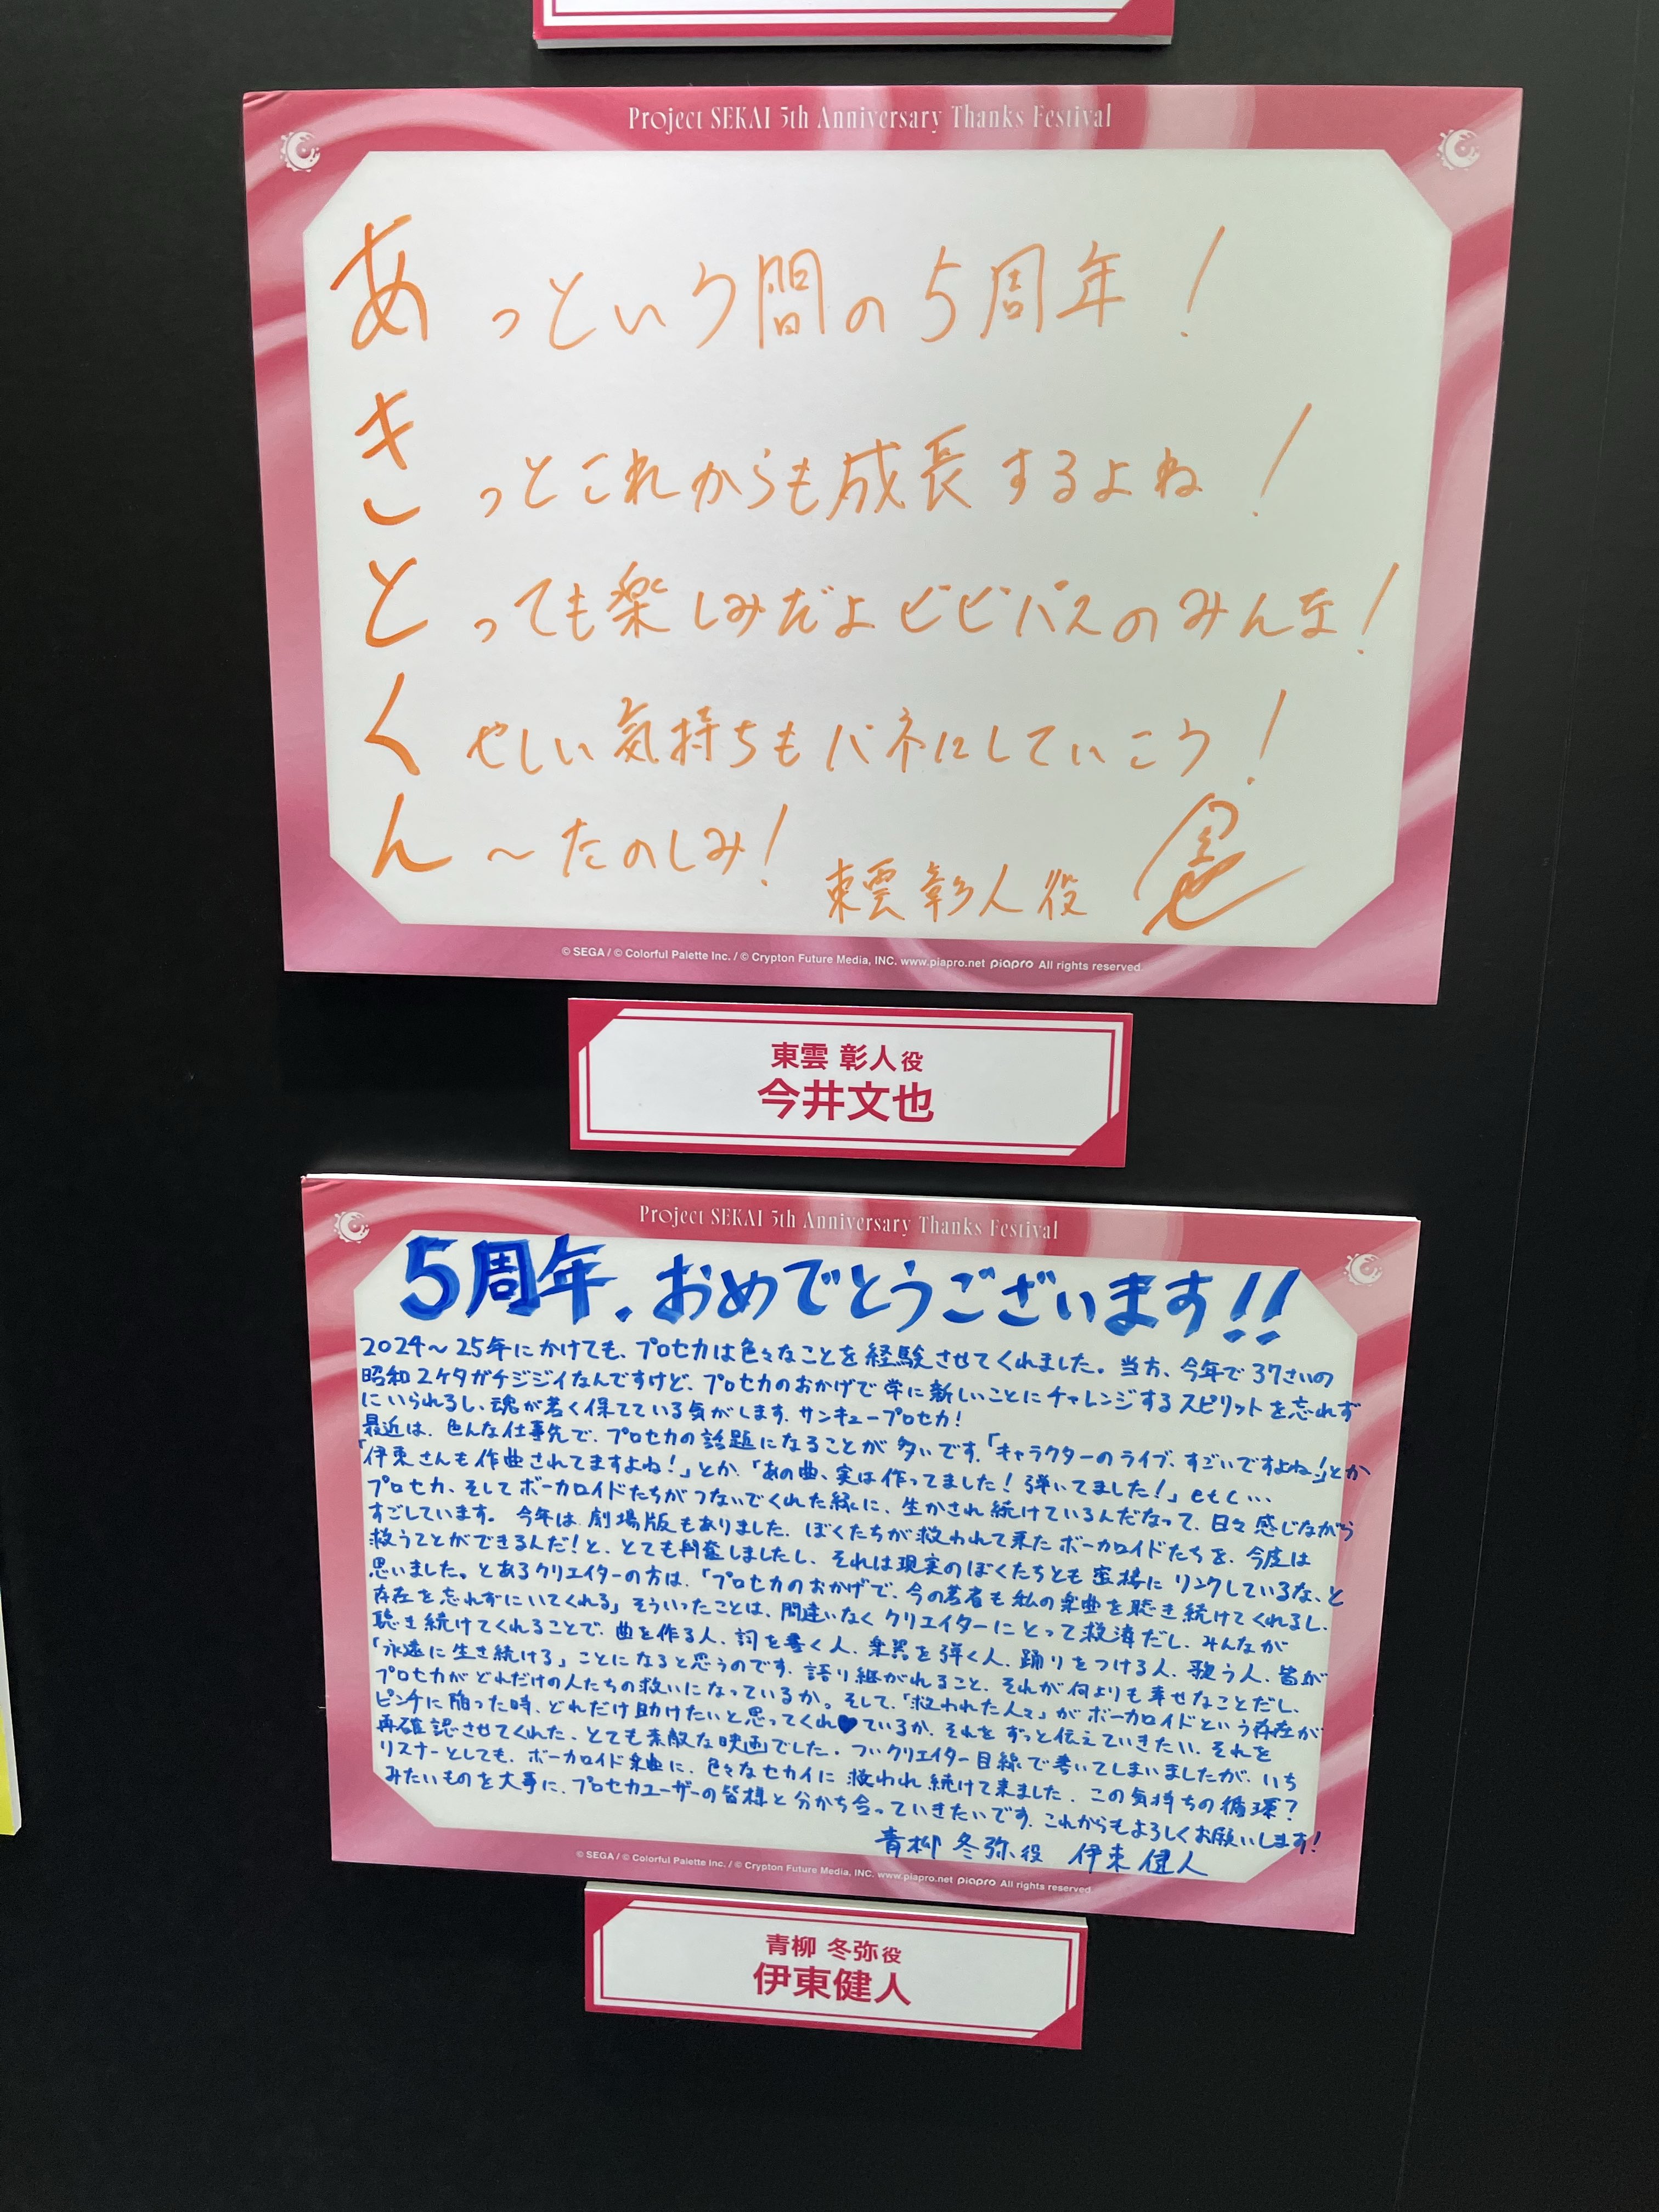 Project SEKAI 5th Anniversary Thanks Festival
あっという間の5周年！
きっとこれからも成長するよね！
とっても楽しみだよビビバスのみんな！
くやしい気持ちもバネにしていこう！
ん～たのしみ！
東雲彰人役
© SEGA / © Colorful Palette Inc. / © Crypton Future Media, INC. www.piapro.net piapro All rights reserved.
東雲 彰人役
今井文也
Project SEKAI 5th Anniversary Thanks Festival
5周年、おめでとうございます!!
2024～25年にかけても、プロセカは色々なことを経験させてくれました。当方、今年で37さいの
昭和2ケタガチジジイなんですけど、プロセカのおかげで常に新しいことにチャレンジするスピリットを忘れず
にいられるし、魂が若く保てている気がします。サンキュープロセカ！
最近は、色んな仕事先で、プロセカの話題になることが多いです。「キャラクターのライブ、すごいですよね！」とか
「伊東さんも作曲されてますよね！」とか、「あの曲、実は作ってました！弾いてました！」etc...
プロセカ、そしてボーカロイドたちがつないでくれた縁に、生かされ続けているんだなって、日々感じながら
すごしています。今年は劇場版もありました。ぼくたちが救われて来たボーカロイドたちを、今度は
救うことができるんだ！と、とても興奮しましたし、それは現実のぼくたちとも密接にリンクしているな、と
思いました。とあるクリエイターの方は、「プロセカのおかげで、今の若者も私の楽曲を聴き続けてくれるし、
存在を忘れずにいてくれる」そういったことは、間違いなくクリエイターにとって救済だし、みんなが
聴き続けてくれることで、曲を作る人、詞を書く人、楽器を弾く人、踊りをつける人、歌う人、皆が
「永遠に生き続ける」ことになると思うのです。語り継がれること、それが何よりも幸せなことだし、
プロセカがどれだけの人たちの救いになっているか。そして、「救われた人々」がボーカロイドという存在が
ピンチに陥った時、どれだけ助けたいと思ってくれ♥ているか、それをずっと伝えていきたい、それを
再確認させてくれた、とても素敵な映画でした。ついクリエイター目線で書いてしまいましたが、いち
リスナーとしても、ボーカロイド楽曲に、色々なセカイに救われ続けて来ました。この気持ちの循環？
みたいものを大事に、プロセカユーザーの皆様と分かち合っていきたいです。これからもよろしくお願いします！
青柳冬弥役 伊東健人
© SEGA / © Colorful Palette Inc. / © Crypton Future Media, INC. www.piapro.net piapro All rights reserved.
青柳 冬弥役
伊東健人